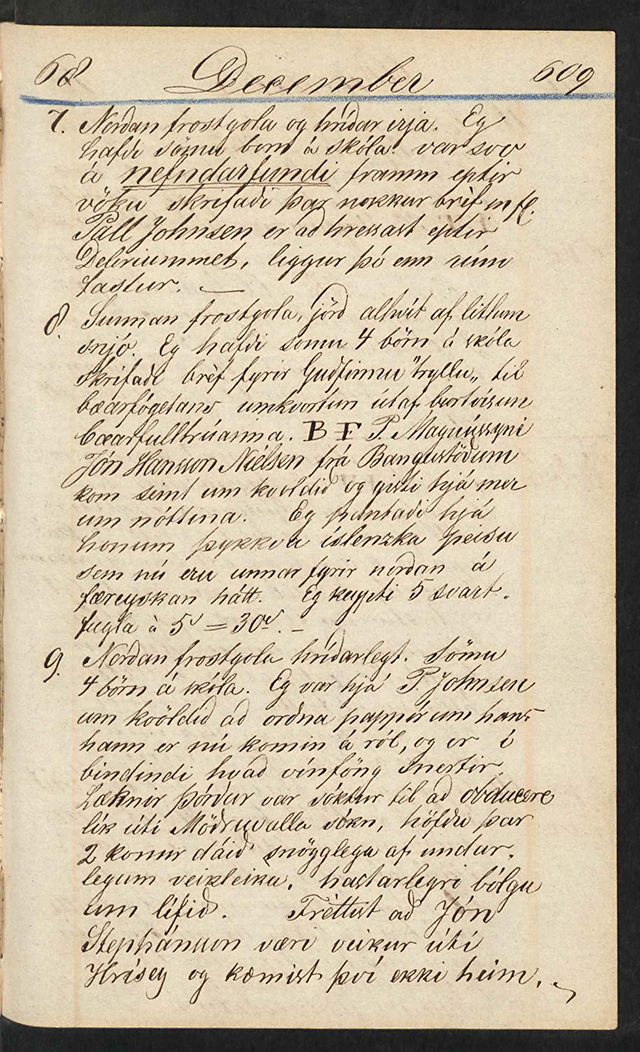 68 December 609
7. Norðan frostgola og hríðar irja. Eg
hafði sömu börn á skóla. var svo
á nefndarfundi framm eptir
vöku skrifaði þar nokkur brèf m fl.
Páll Johnsen er að hressast eptir
Deliriummet, liggur þó enn rúm
fastur. —
8. Sunnan frostgola, jörð alhvít af litlum
snjó. Eg hafði sömu 4 börn á skóla
skrifaði brèf fyrir Guðfinnu "tryllu„ til
bæarfógetans umkvörtun útaf burtvísun
bæarfulltrúanna. B F P. Magnussyni
Jón Hansson Nielsen frá Bangastöðum
kom seint um kvöldið og gisti hjá mer
um nóttina. Eg pantaði hjá
honum þykkva islenzka peisu
sem nú eru unnar fyrir norðan á
færeyskan hátt. Eg keypti 5 svart-
fugla à 5 = 30. —
9. Norðan frostgola hríðarlegt. Sömu
4 börn á skóla. Eg var hjá P. Johnsen
um kvöldið að orðna pappírum hans
hann er nú komin á ról, og er í
bindindi hvað vínföng snertir
Læknir Þórður var sóktur til að obducere
lík úti Möðruvalla sókn, höfðu þar
2 konur dáið snögglega af undar-
legum veikleika, hastarlegri bólgu
um lífið. Fréttist að Jón
Stephánsson væri veikur úti
Hrísey og kæmist því ekki heim.